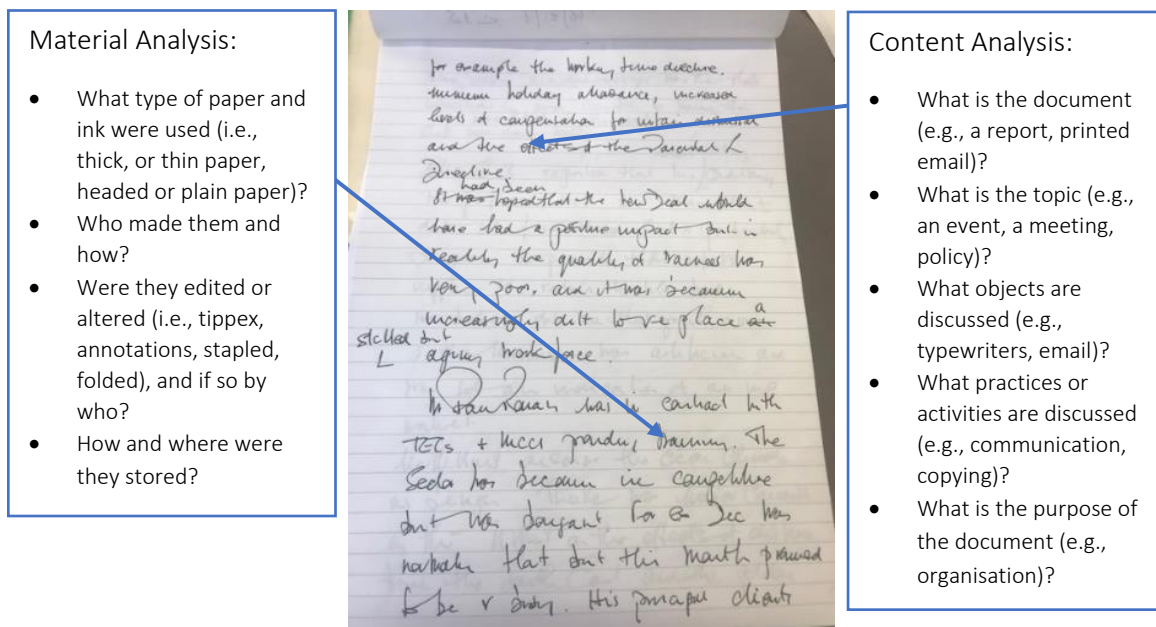 Material Analysis:
• What type of paper and
ink were used (i.e.,
thick, or thin paper,
headed or plain paper)?
• Who made them and
how?
• Were they edited or
altered (i.e., tippex,
annotations, stapled,
folded), and if so by
who?
• How and where were
they stored?
for example the working time directive.
minimum holiday allowance, increased
levels of compensation for unfair dismissal
and the effects of the Parental L
Directive.
had been
It was hoped that the New Deal would
have had a positive impact but in
reality the quality of trainees was
very poor, and it was becoming
increasingly diff to replace an a
skilled but
ageing workforce.
was in contact with
TECs + training. The
Sector has become competitive
but was buoyant. For Dec was
normally flat but this month promised
to be v busy. His principal clients
Content Analysis:
• What is the document
(e.g., a report, printed
email)?
• What is the topic (e.g.,
an event, a meeting,
policy)?
• What objects are
discussed (e.g.,
typewriters, email)?
• What practices or
activities are discussed
(e.g., communication,
copying)?
• What is the purpose of
the document (e.g.,
organisation)?